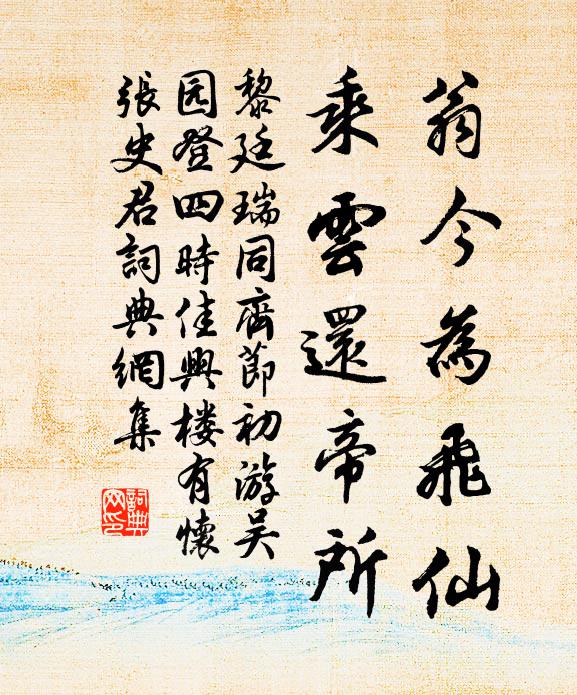 翁今為飛仙
乘雲還帝所
黎廷瑞同齊節初游吴
园登四時佳興楼有懷
張史君詞典網集
詞典網印